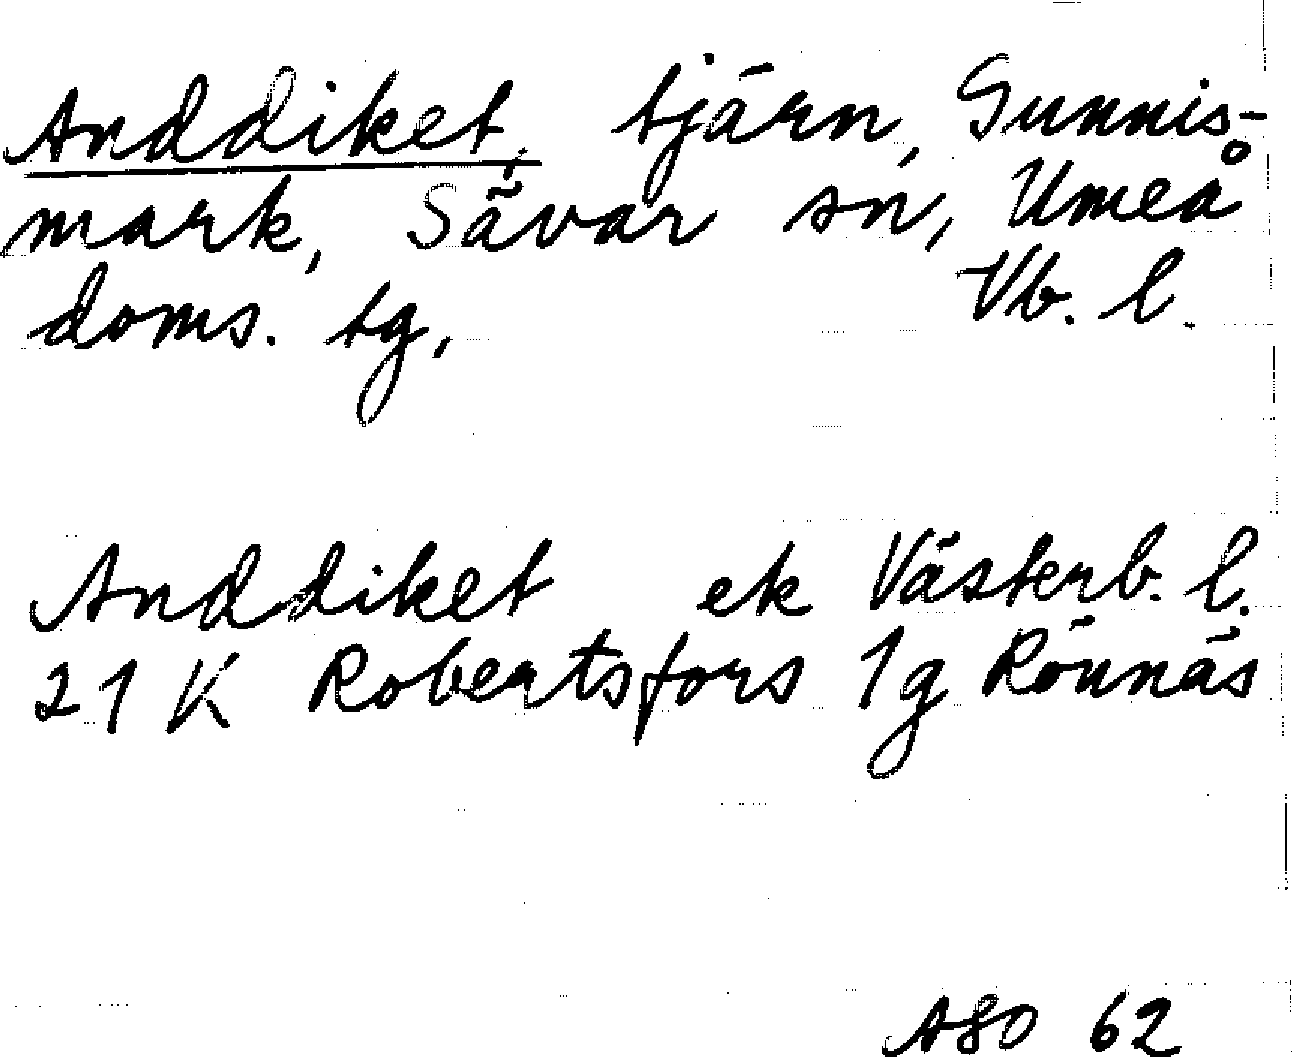 Anddiket, tjärn, Gunnis-
mark, Sävar sn, Umeå
doms. tg, Vb. l.
Anddiket ek Västerb. l.
21 K Robertsfors 1g Rönnäs
ASO 62